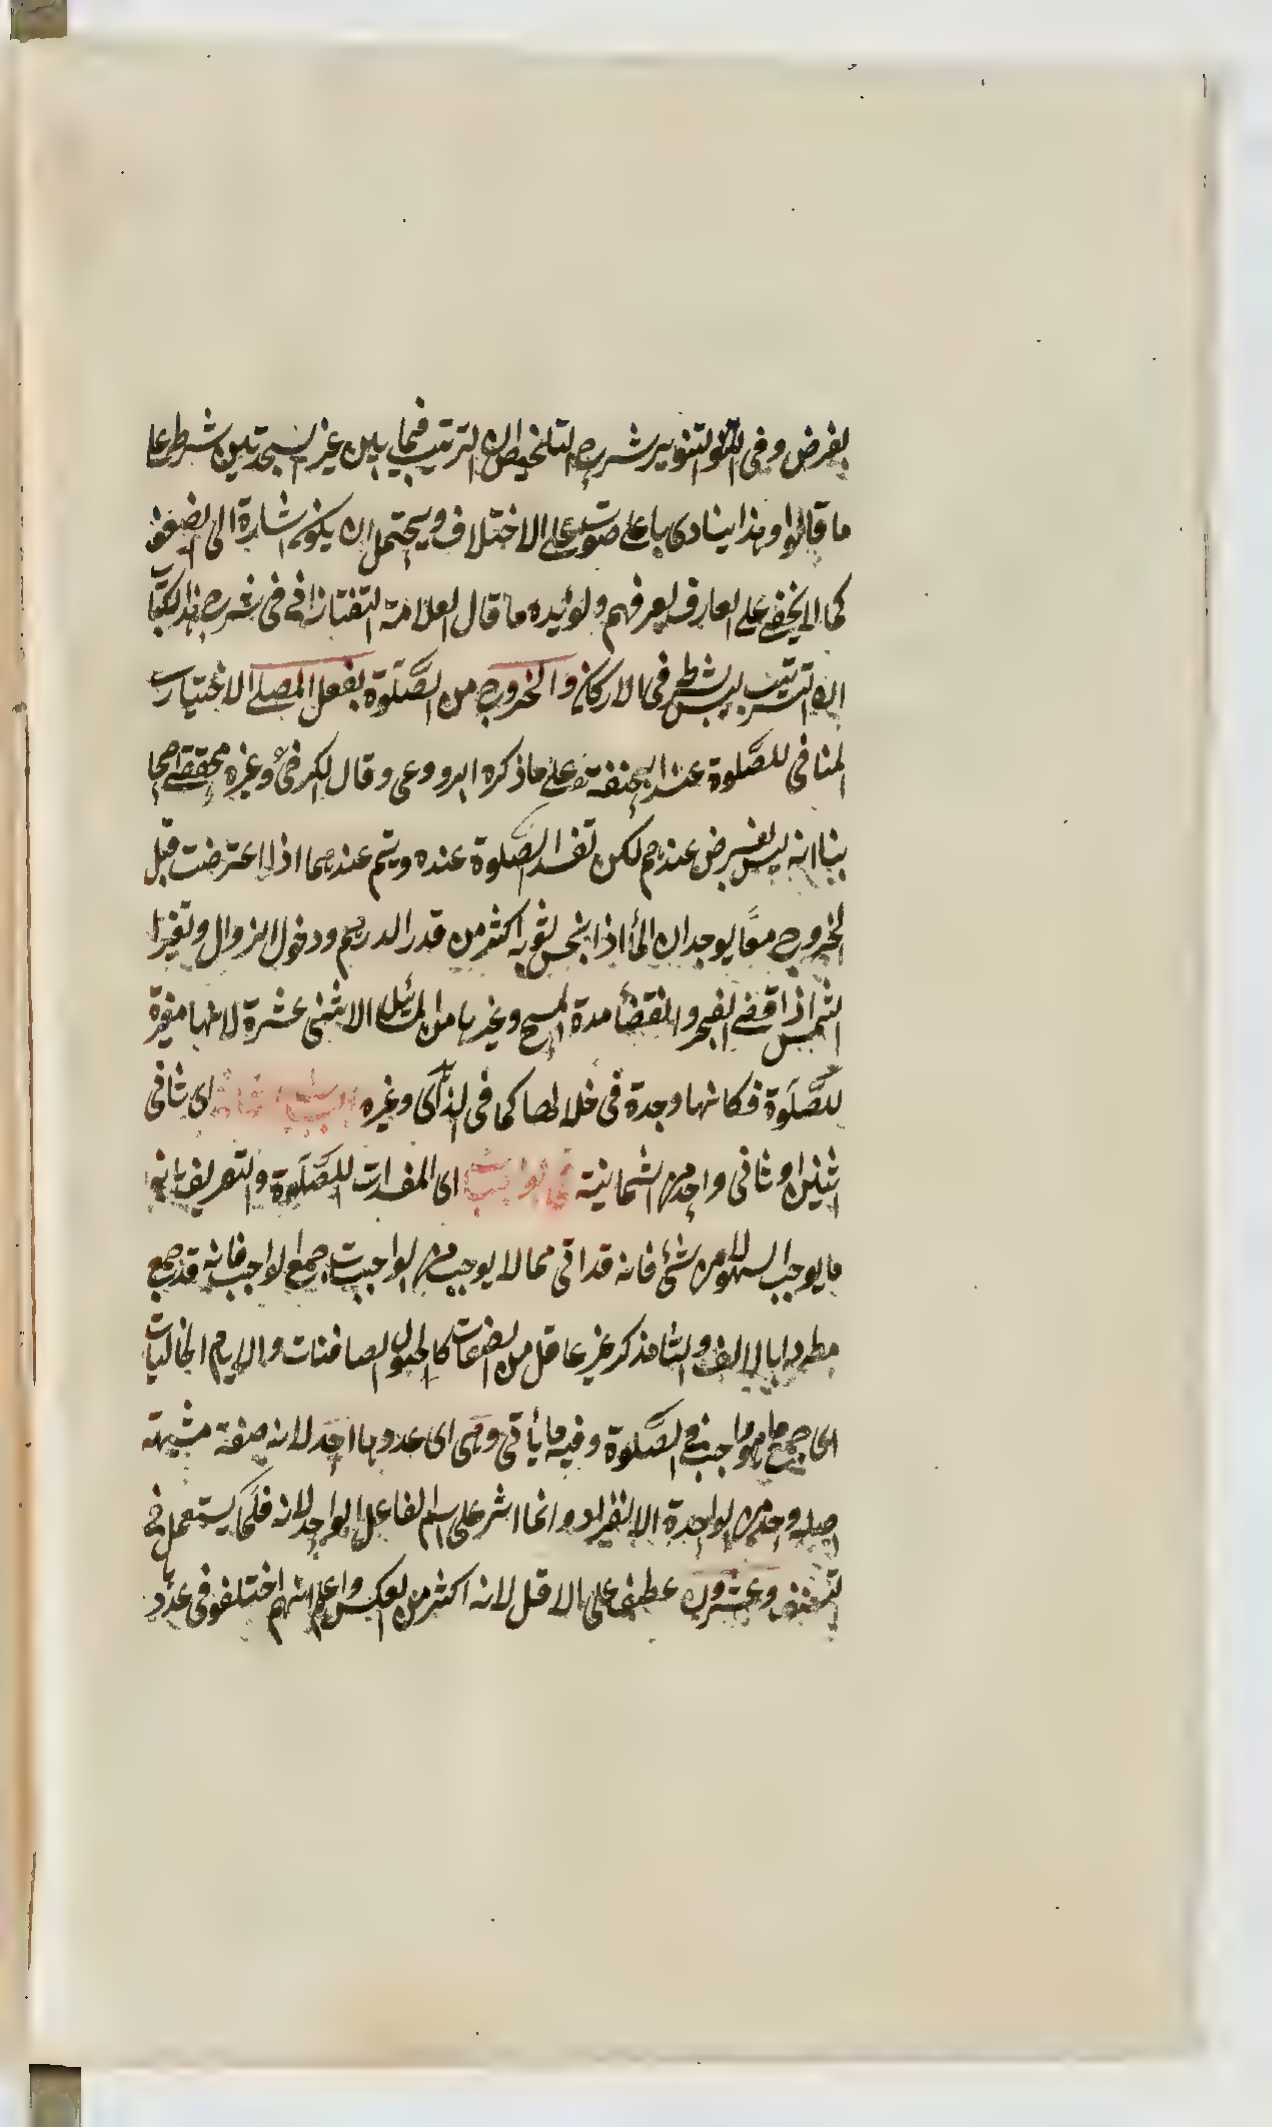 بفرض وفى التنوير شرح التلخيص ان الترتيب فيما بين غير السجدتين شرط على
ما قالوا وهذا ينادى باعلى صوت على الاختلاف ويحتمل ان يكون اشارة الى الضعف
كما لا يخفى على العارف لعرفهم ويؤيده ما قال العلامة التفتازانى فى شرح هذا الكتاب
ان الترتيب ليس بشرط فى الاركان والخروج من الصلوة بفعل المصلى الاختيارى
المنافى للصلوة عند ابيحنيفة على ما ذكره البردوعى وقال الكرخى وغيره محققى اصحا
بنا انه ليس بفرض عندهم لكن تفسد الصلوة عنده ويتم عندهما اذا اعترضت قبل
الخروج معا يوجد ان الماء اذا بنجس ثوبه اكثر من قدر الدرهم ودخول الزوال وتغير
الشمس اذا قضى الفجر وانقضاء مدة المسح وغيرها من المسائل الاثنى عشرة لانها مغيرة
للصلوة فكانها وجدة فى خلالها كما فى وغيره اى ثانى
اثنين او ثانى واحد من الثمانية اى المفسدات للصلوة والتعريف بانه
ما يوجب السهو من شئ فانه قد اتى مما لا يوجب من الواجبات جمع الواجب فانه قد جمع
مطردا بالالف والتاء مذكر غير عاقل من الصفات كالخيول الصافنات والايام الخاليات
اى جميع ما هو واجب فى الصلوة وفيه ما يأتى وهى اى عددها احد لانه صفة مشبهة
اصله وحد من الواحدة الانفراد وانما اشر على اسم الفاعل الواحد لانه قلما يستعمل فى
وعشرون عطف على الاقل لانه اكثر من العكس واعلم انهم اختلفو فى عددها